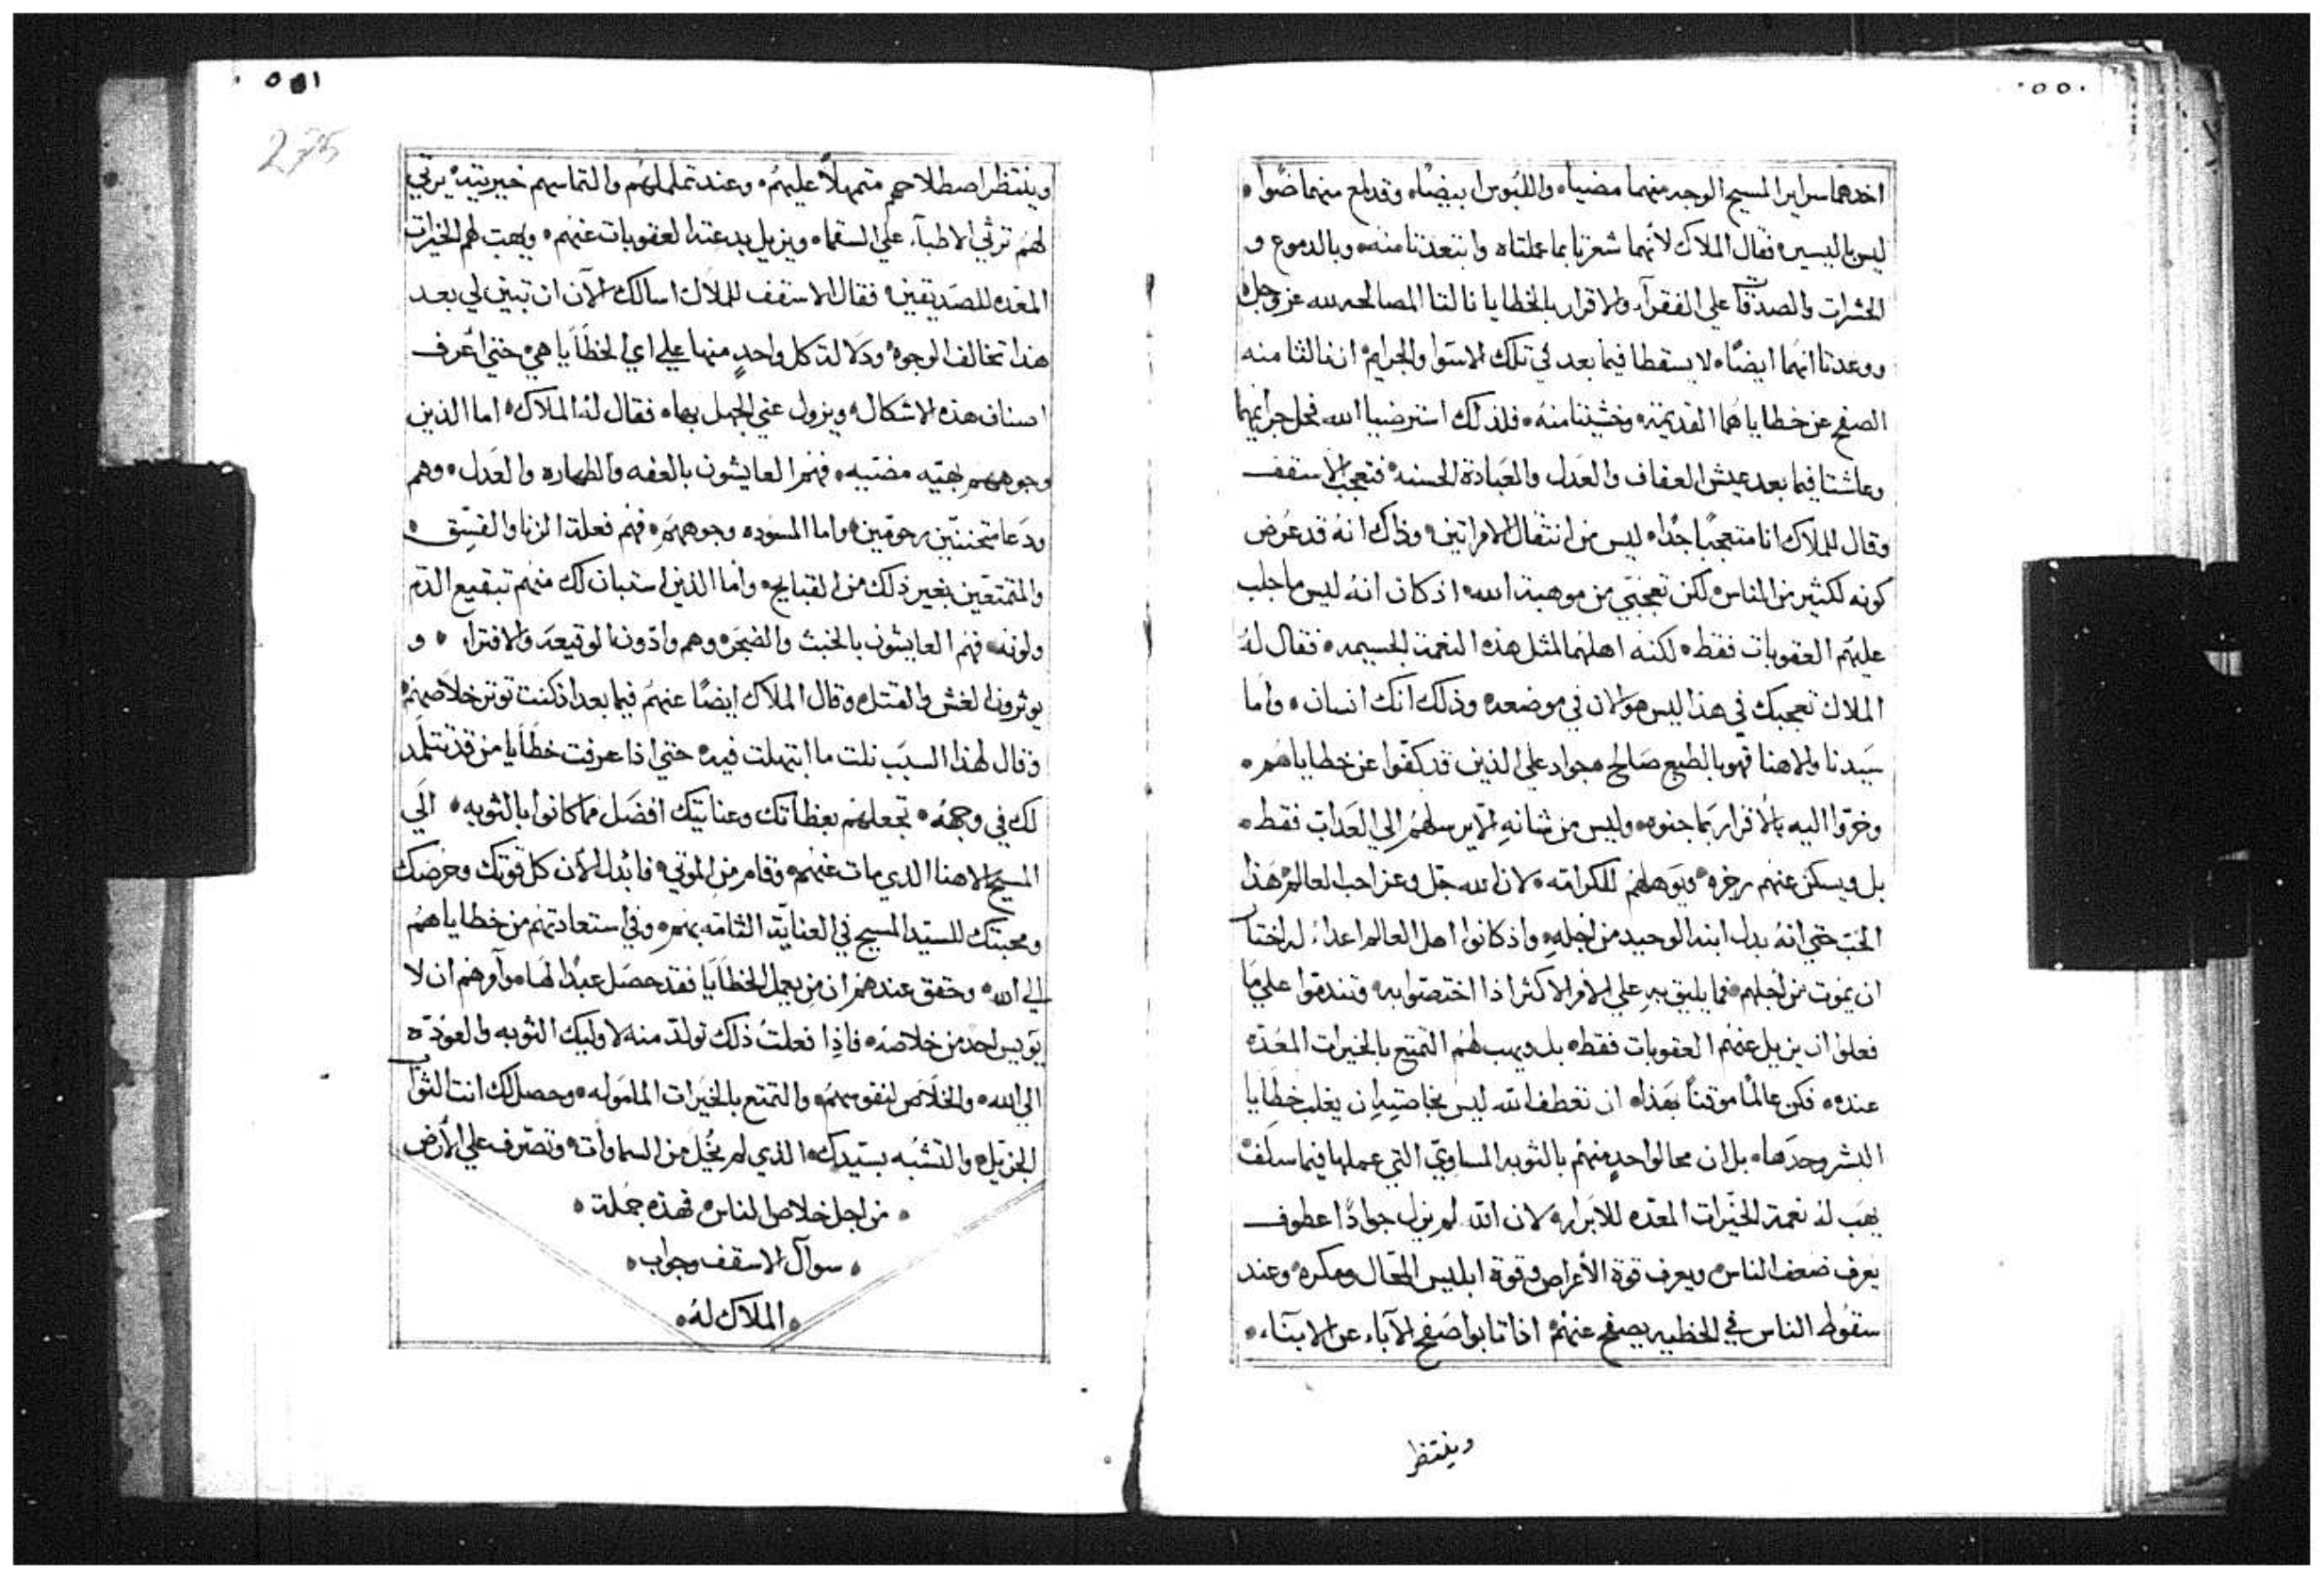 ٥٥٠
اخدهما سراير المسيح الوجه منهما مضياه واللبوس ابيضاه وقد لمع منهما ضوا
ليس باليسير فقال الملاك لأنهما شعرتا بما عملتاه وابتعدتا منه وبالدموع و
الحشرات والصدقات علي الفقرآء والاقرار بالخطايا نالتا المصالحه لله عز وجل
ووعدتا انهما ايضًا لا يسقطا فيما بعد في تلك الاسوا والجرايم اذ نالتا منه
الصفح عن خطاياهما القديمة وخشيتا منه فلذلك استرضيا الله فحل جرايمهما
وعاشتا فيما بعد عيش العفاف والعدل والعبادة الحسنه فتعجب الاسقف
وقال للملاك انا متعجبًا جدًا ليس من انتقال الامراتين وذاك انه قد عرض
كونه لكثير من الناس لكن تعجبي من موهبة الله اذ كان انه ليس ما جلب
عليهم العقوبات فقط لكنه اهلهما لمثل هذه النعمة الجسيمه فقال له
الملاك تعجبك في هذا ليس هو الان في موضعه وذلك انك انسان واما
سيدنا والاهنا فهو بالطبع صالح جواد علي الذين قد كفوا عن خطاياهم
وخروا اليه بالاقرار بما جنوه وليس من شانه الا يرسلهم الي العداب فقط
بل ويسكن عنهم رجزه ويوهلهم للكرامه لان الله جل وعز احب العالم هذا
الحب حتي انه بدل ابنه الوحيد من اجله واذ كانوا اهل العالم اعداءً له اختار
ان يموت من اجلهم فما يليق به علي الامر الاكثر اذا اختصوا به وتندموا علي ما
فعلوا ان يزيل عنهم العقوبات فقط بل ويهب لهم التمتع بالخيرات المعده
عنده فكن عالمًا موقنًا بهذا ان تعطف الله ليس بخاصته ان يغلب خطايا
البشر وحدها بل ان محا لواحد منهم بالتوبه المساوي التي عملها فيما سلف
يهب له نعمة الخيرات المعده للابرار لان الله لم يزل جوادًا عطوف
يعرف ضعف الناس ويعرف قوة الأعراض وقوة ابليس المحال ومكره وعند
سقوط الناس في الخطيه يصفح عنهم اذا تابوا صفح الآباء عن الابنآء
وينتظر
٥٥١
275
وينتظر اصطلاحهم متمهلاً عليهم وعند تململهم والتماسهم خيريته يرثي
لهم ترثي الاطبآء علي السقماه ويزيل بدعته العقوبات عنهم ويهب لهم الخيرات
المعده للصديقين فقال الاسقف للملاك اسالك الآن ان تبين لي بعد
هذا تخالف الوجوه ودلالة كل واحدٍ منها علي اي الخطايا هي حتي أعرف
اصناف هذه الاشكال ويزول عني الجهل بها فقال له الملاك اما الذين
وجوههم بهيّه مضيّه فهم العايشون بالعفه والطهاره والعدل وهم
ودعا متحننين رحومين واما المسوده وجوههم فهم فعلة الزنا والفسق
والمتمتعين بغير ذلك من القبايح واما الذين استبان لك منهم تبقيع الدم
ولونه فهم العايشون بالخبث والضجر وهم وادّون الوقيعه والافترا و
يوثرون الغش والقتل وقال الملاك ايضًا عنهم فيما بعد اذ كنت توثر خلاصهم
وقال لهذا السبب نلت ما ابتهلت فيه حتي اذا عرفت خطايا من قد تتلمد
لك في وجهه تجعلهم بعظاتك وعنايتك افضل مما كانوا بالتوبه الي
المسيح الاهنا الدي مات عنهم وقام من الموتي فابدل الأن كل قوتك وحرصك
ومحبتك للسيد المسيح في العناية التامه بهم وفي استعادتهم من خطاياهم
الي الله وحقق عندهم ان من يعمل الخطايا فقد حصل عبدًا لها وآورهم ان لا
يوييس احد من خلاصه فاذا فعلت ذلك تولد منه لاوليك التوبه والعودة
الي الله والخلاص لنفوسهم والتمتع بالخيرات المامولة وحصل لك انت الثواب
الجزيل والتشبه بسيدك الذي لم يخل من السماوات وتصرف علي الأرض
من اجل خلاص الناس فهذه جملة
سوآل الاسقف وجواب
الملاك له